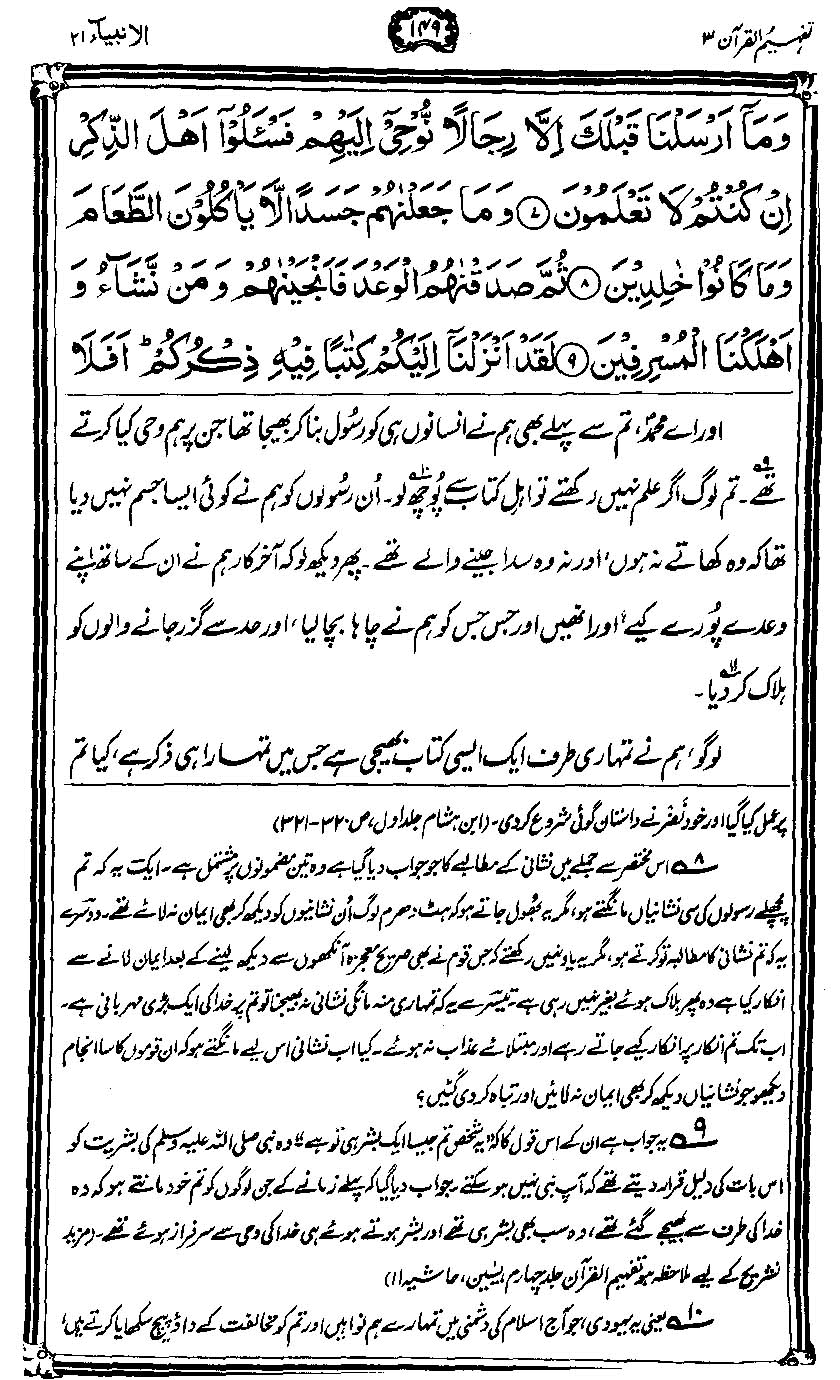 تفہیم القرآن ۳
۱۴۹
الانبیاء ۲۱
وَمَآ اَرْسَلْنَا قَبْلَكَ اِلَّا رِجَالًا نُّوْحِیْٓ اِلَیْهِمْ فَسْـَٔلُوْٓا اَهْلَ الذِّكْرِ
اِنْ كُنْتُمْ لَا تَعْلَمُوْنَ ۷ وَمَا جَعَلْنٰهُمْ جَسَدًا لَّا یَاْكُلُوْنَ الطَّعَامَ
وَمَا كَانُوْا خٰلِدِیْنَ ۸ ثُمَّ صَدَقْنٰهُمُ الْوَعْدَ فَاَنْجَیْنٰهُمْ وَمَنْ نَّشَآءُ وَ
اَهْلَكْنَا الْمُسْرِفِیْنَ ۹ لَقَدْ اَنْزَلْنَآ اِلَیْكُمْ كِتٰبًا فِیْهِ ذِكْرُكُمْ ؕ اَفَلَا
اور اے محمدؐ، تم سے پہلے بھی ہم نے انسانوں ہی کو رسُول بنا کر بھیجا تھا جن پر ہم وحی کیا کرتے
تھے۹۔ تم لوگ اگر علم نہیں رکھتے تو اہلِ کتاب سے پُوچھ لو۱۰۔ اُن رسُولوں کو ہم نے کوئی ایسا جسم نہیں دیا
تھا کہ وہ کھاتے نہ ہوں، اور نہ وہ سدا جینے والے تھے۔ پھر دیکھ لو کہ آخرکار ہم نے ان کے ساتھ اپنے
وعدے پُورے کیے، اور انھیں اور جس جس کو ہم نے چاہا بچا لیا، اور حد سے گزر جانے والوں کو
ہلاک کر دیا۱۱۔
لوگو، ہم نے تمہاری طرف ایک ایسی کتاب بھیجی ہے جس میں تمہارا ہی ذکر ہے، کیا تم
پر عمل کیا گیا اور خود نَضر نے داستان گوئی شروع کر دی۔ (ابن ہشام جلد اول، ص ۳۲۰-۳۲۱)
۸ اس مختصر سے جملے میں نشانی کے مطالبے کا جو جواب دیا گیا ہے وہ تین مضمونوں پر مشتمل ہے۔ ایک یہ کہ تم
پچھلے رسولوں کی سی نشانیاں مانگتے ہو، مگر یہ بھُول جاتے ہو کہ ہٹ دھرم لوگ اُن نشانیوں کو دیکھ کر بھی ایمان نہ لائے تھے۔ دوسرے
یہ کہ تم نشانی کا مطالبہ تو کرتے ہو، مگر یہ یاد نہیں رکھتے کہ جس قوم نے بھی صریح معجزہ آنکھوں سے دیکھ لینے کے بعد ایمان لانے سے
انکار کیا ہے وہ پھر ہلاک ہوئے بغیر نہیں رہی ہے۔ تیسرے یہ کہ تمہاری منہ مانگی نشانی نہ بھیجنا تو تم پر خدا کی ایک بڑی مہربانی ہے۔
اب تک تم انکار پر انکار کیے جاتے رہے اور مبتلائے عذاب نہ ہوئے۔ کیا اب نشانی اس لیے مانگتے ہو کہ ان قوموں کا سا انجام
دیکھو جو نشانیاں دیکھ کر بھی ایمان نہ لائیں اور تباہ کر دی گئیں؟
۹ یہ جواب ہے ان کے اس قول کا کہ "یہ شخص تم جیسا ایک بشر ہی تو ہے"۔ وہ نبی صلی اللہ علیہ وسلم کی بشریت کو
اس بات کی دلیل قرار دیتے تھے کہ آپ نبی نہیں ہو سکتے۔ جواب دیا گیا کہ پہلے زمانے کے جن لوگوں کو تم خود مانتے ہو کہ وہ
خدا کی طرف سے بھیجے گئے تھے، وہ سب بھی بشر ہی تھے اور بشر ہوتے ہوئے ہی خدا کی وحی سے سرفراز ہوئے تھے۔ (مزید
تشریح کے لیے ملاحظہ ہو تفہیم القرآن جلد چہارم، یٰسین، حاشیہ ۱۱)
۱۰ یعنی یہ یہودی، جو آج اسلام کی دشمنی میں تمہارے ہم نوا ہیں اور تم کو مخالفت کے داؤ پیچ سکھایا کرتے ہیں،